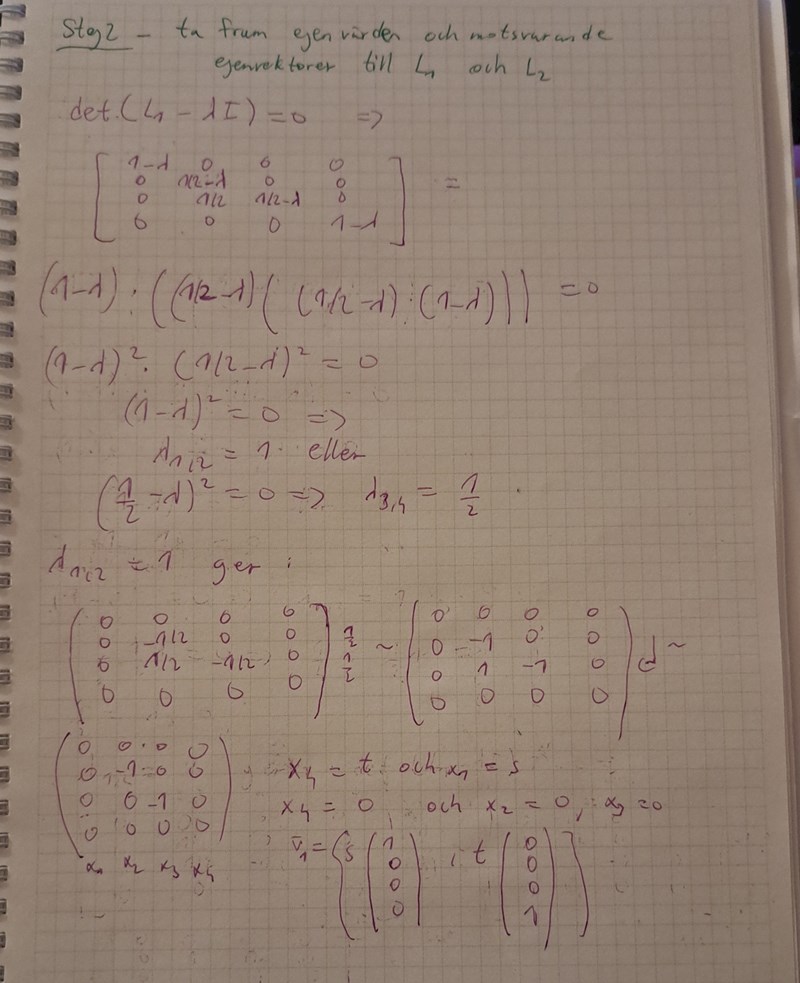 Steg 2 - ta fram egenvärden och motsvarande
egenvektorer till L₁ och L₂
det(L₁ - λI) = 0 =>
[ 1-λ 0 0 0
0 1/2-λ 0 0
0 1/2 1/2-λ 0
0 0 0 1-λ ] =
(1-λ) · ((1/2-λ)((1/2-λ)·(1-λ))) = 0
(1-λ)² · (1/2-λ)² = 0
(1-λ)² = 0 =>
λ₁,₂ = 1 eller
(1/2 - λ)² = 0 => λ₃,₄ = 1/2
λ₁,₂ = 1 ger:
( 0 0 0 0 ( 0 0 0 0
0 -1/2 0 0 1/2 ~ 0 -1 0 0
0 1/2 -1/2 0 1/2 0 1 -1 0 ~
0 0 0 0 ) 0 0 0 0 )
( 0 0 0 0
0 -1 0 0 x₄ = t och x₁ = s
0 0 -1 0 x₄ = 0, och x₂ = 0, x₃ = 0
0 0 0 0 )
x₁ x₂ x₃ x₄
v̄₁ = { s ( 1 0 0 0 ) , t ( 0 0 0 1 ) }